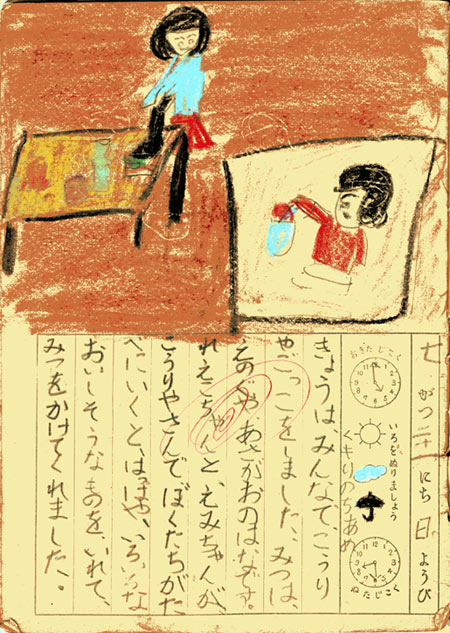 七 がつ 二十一 にち 日 ようび
おきたじこく
いろをぬりましょう
くもりのちあめ
ねたじこく
きょうは、みんなで、こうり
やごっこをしました、みつは、
えのぐや あさがおのはなです。
れえこちゃんと、えみちゃんが、
こうりやさんで、ぼくたちがた
べにいくと、いろいろな
おいしそうなものを、いれて、
みつをかけてくれました、。